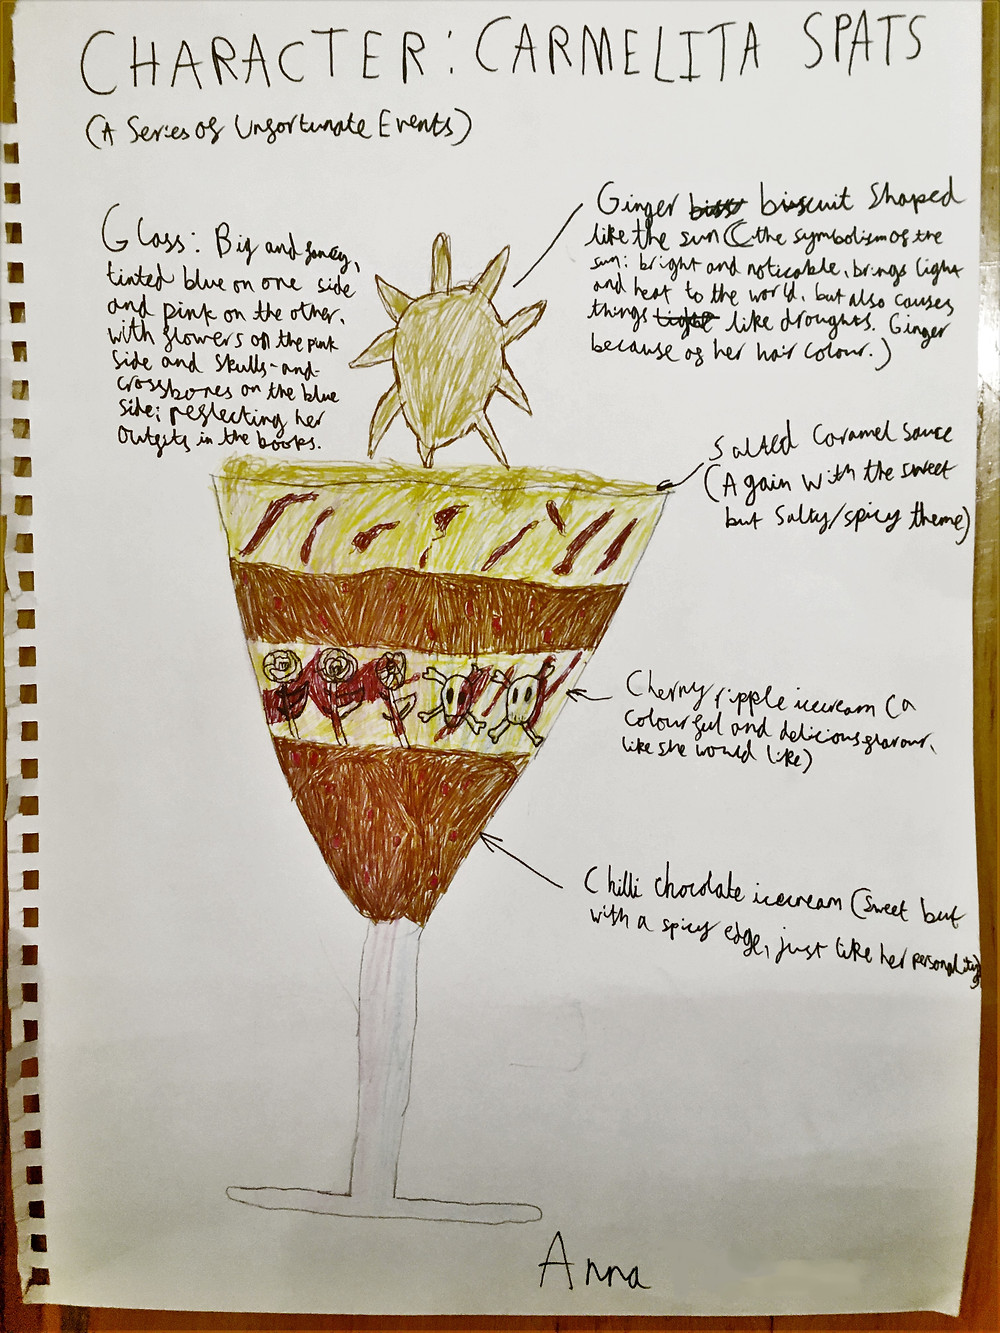 CHARACTER: CARMELITA SPATS
(A Series of Unfortunate Events)
Glass: Big and fancy,
tinted blue on one side
and pink on the other,
with flowers on the pink
side and skulls-and-
crossbones on the blue
side; reflecting her
outfits in the books.
Ginger biscuit shaped
like the sun (the symbolism of the
sun: bright and noticable, brings light
and heat to the world, but also causes
things like droughts. Ginger
because of her hair colour.)
Salted caramel sauce
(Again with the sweet
but salty/spicy theme)
Cherry ripple icecream (a
colourful and delicious flavour,
like she would like)
Chilli chocolate icecream (sweet but
with a spicy edge, just like her personality)
Anna